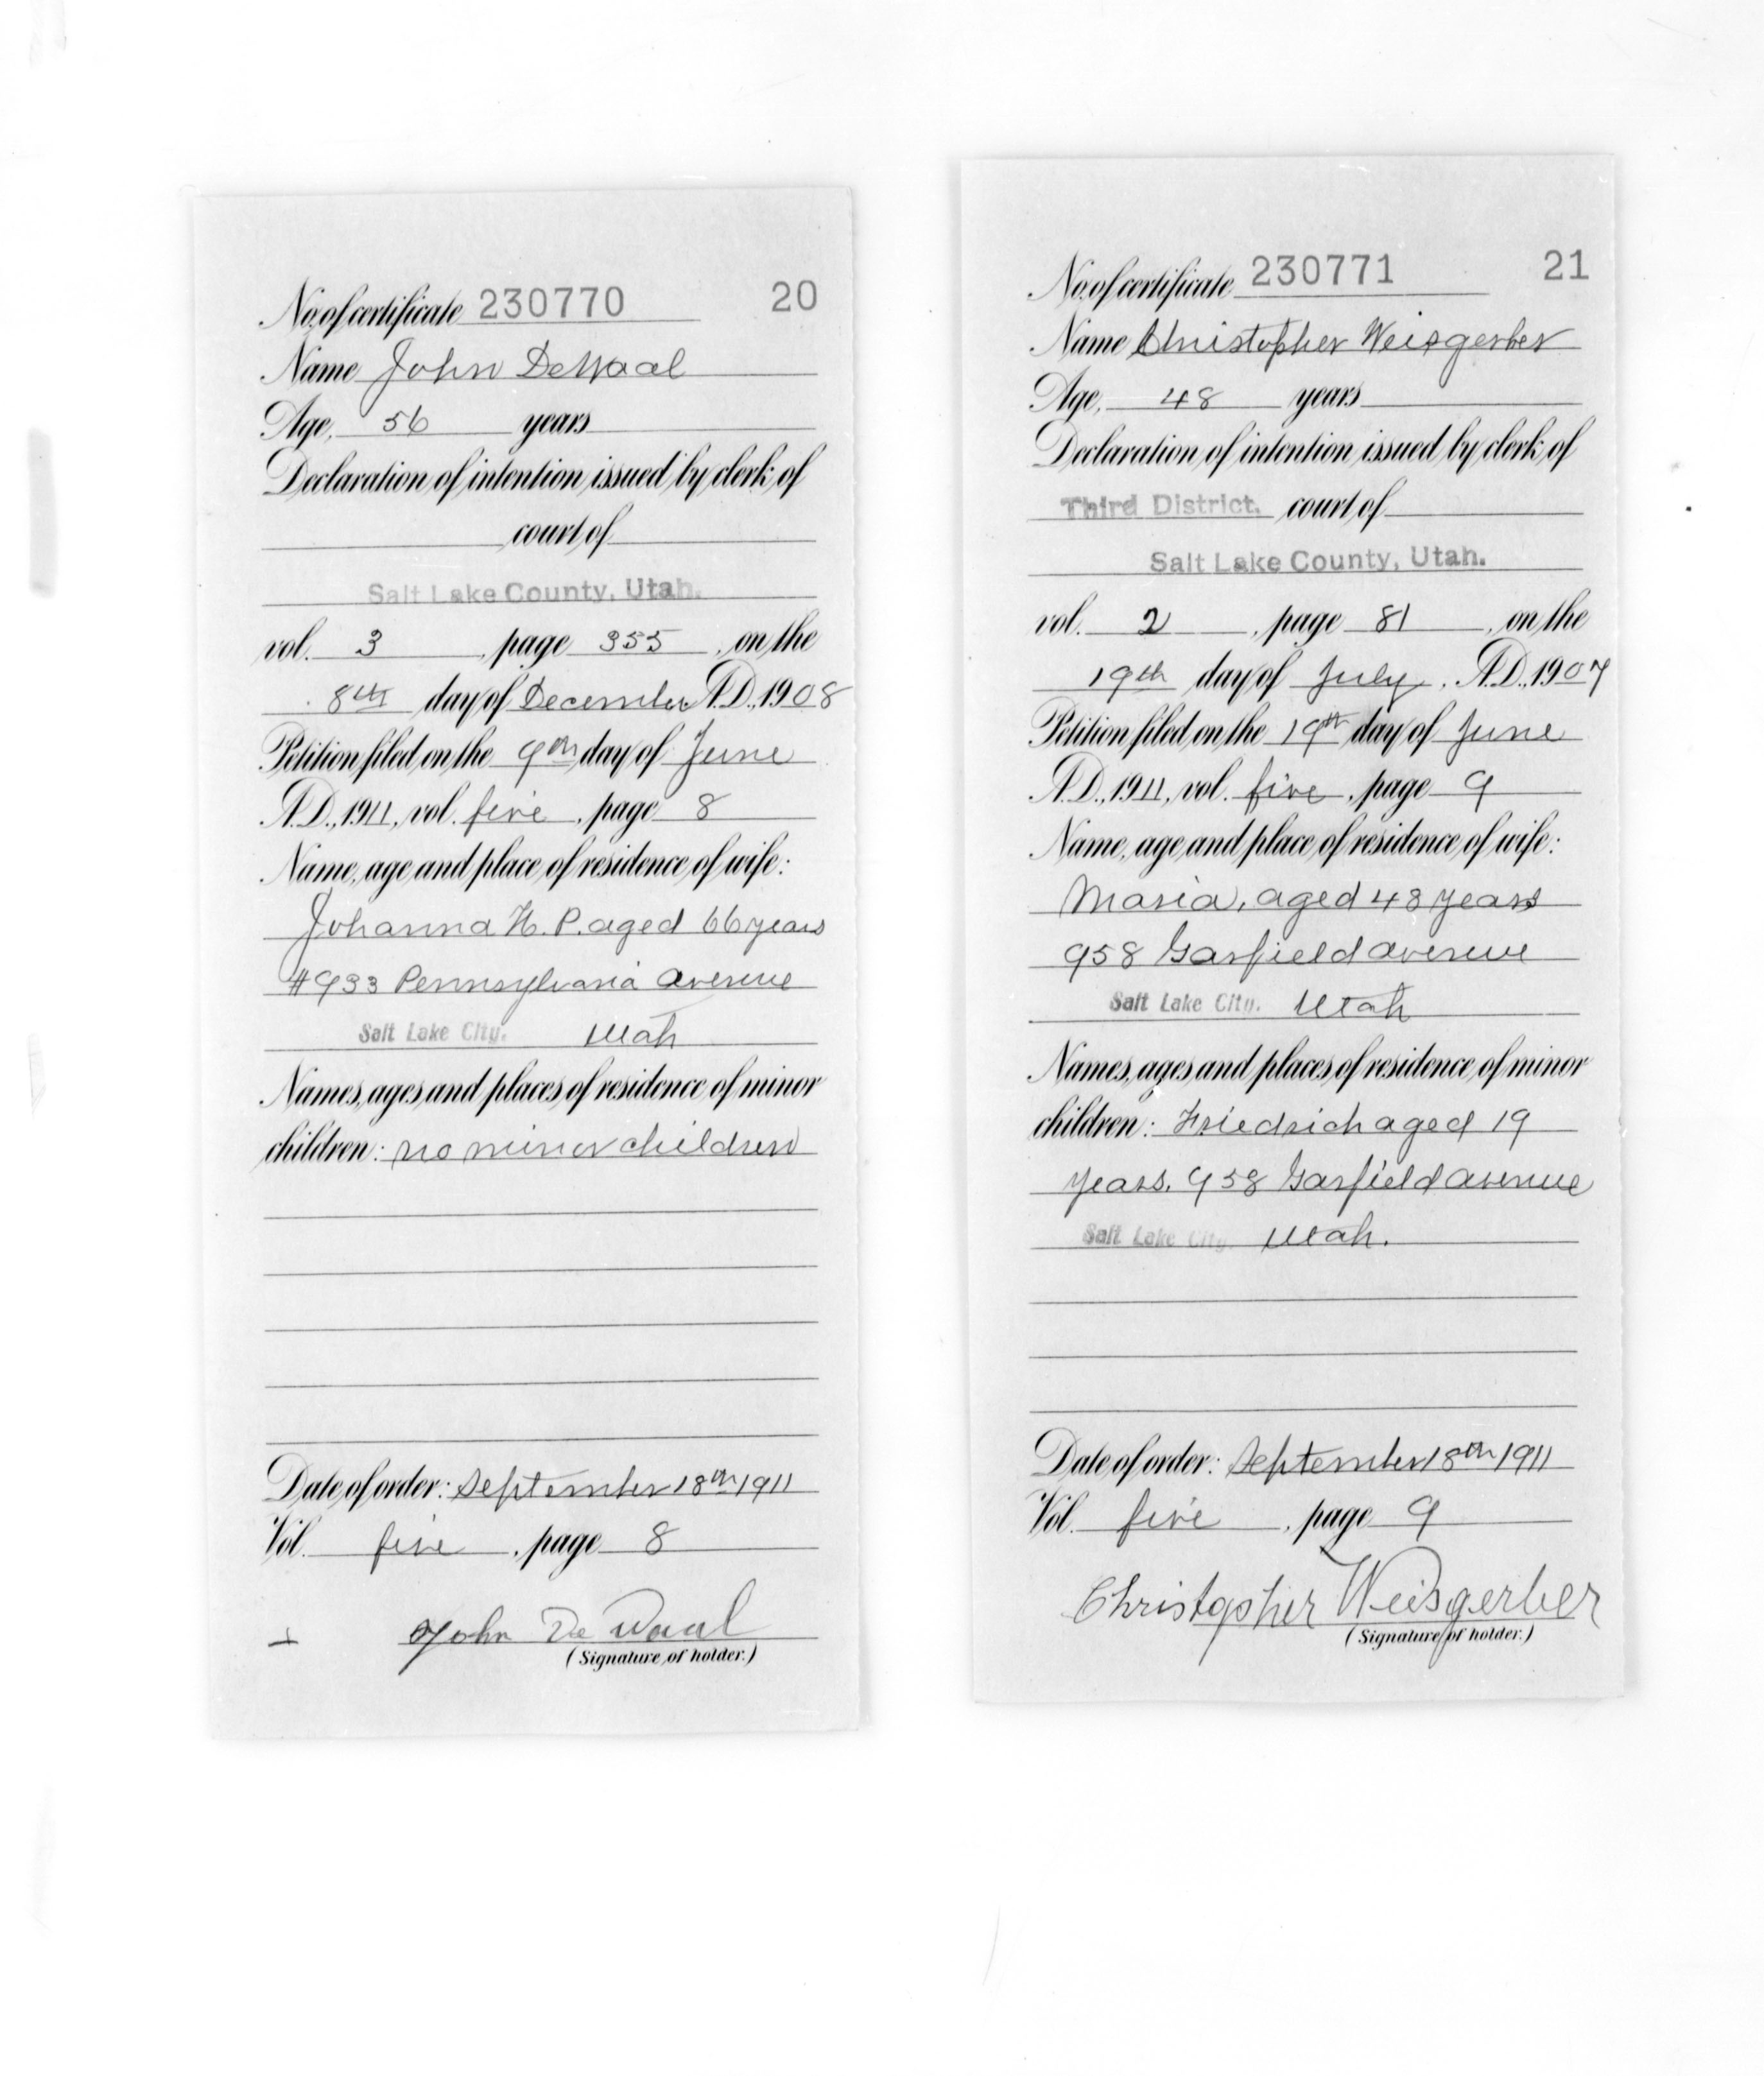 No. of certificate 230770 20
Name John DeWaal
Age, 56 years
Declaration of intention issued by clerk of
court of
Salt Lake County, Utah.
vol. 3, page 355, on the
8th day of December A.D., 1908
Petition filed on the 9th day of June
A.D., 1911, vol. five, page 8
Name, age and place of residence of wife:
Johanna H. P. aged 66 years
#933 Pennsylvania avenue
Salt Lake City. Utah
Names, ages and places of residence of minor
children: no minor children
Date of order: September 18th 1911
Vol. five, page 8
John De Waal
(Signature of holder.)
No. of certificate 230771 21
Name Christopher Weisgerber
Age, 48 years
Declaration of intention issued by clerk of
Third District. court of
Salt Lake County, Utah.
vol. 2, page 81, on the
19th day of July, A.D., 1907
Petition filed on the 19th day of June
A.D., 1911, vol. five, page 9
Name, age and place of residence of wife:
Maria, aged 48 years
958 Garfield avenue
Salt Lake City. Utah
Names, ages and places of residence of minor
children: Friedrich aged 19
years. 958 Garfield avenue
Salt Lake City. Utah.
Date of order: September 18th 1911
Vol. five, page 9
Christopher Weisgerber
(Signature of holder.)